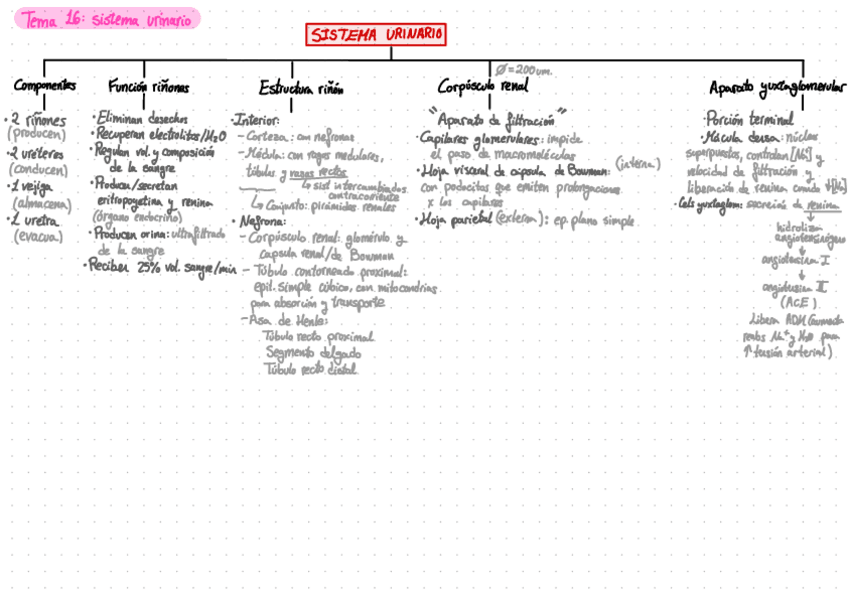 Tema 16: sistema urinario
SISTEMA URINARIO
Componentes
· 2 riñones
(producen)
· 2 ureteres
(conducen)
· 1 vejiga
(almacena)
· 1 uretra
(evacua)
Función riñones
· Eliminan desechos
· Recuperan electrolitos/H2O
· Regulan vol. y composición
de la sangre
· Producen/secretan
eritropoyetina y renina
(órgano endocrino)
· Producen orina: ultrafiltrado
de la sangre
· Reciben 25% vol. sangre/min
Estructura riñón
· Interior:
- Corteza: con nefronas
- Médula: con rayos medulares,
túbulos y vasos rectos
↳ sist intercambiador
contracorriente
↳ Conjunto: pirámides renales
· Nefrona:
- Corpúsculo renal: glomérulo y
capsula renal/de Bowman
- Túbulo contorneado proximal:
epit. simple cúbico, con mitocondrias
para absorción y transporte
- Asa de Henle:
Túbulo recto proximal
Segmento delgado
Túbulo recto distal
Corpúsculo renal
Ø=200um.
"Aparato de filtración"
· Capilares glomerulares: impide
el paso de macromoléculas
· Hoja visceral de cápsula de Bowman: (interna)
con podocitos que emiten prolongaciones
x los capilares
· Hoja parietal (externa): ep. plano simple.
Aparato yuxtaglomerular
· Porción terminal
· Mácula densa: núcleos
superpuestos, controlan [Na] y
velocidad de filtración y
liberación de renina cuando ↓[Na]
· Cels yuxtaglom: secreción de renina
↓
hidroliza
angiotensinógeno
↓
angiotensina I
↓
angiotensina II
(ACE)
Libera ADH (aumenta
reabs Na+ y H2O para
↑ tensión arterial)